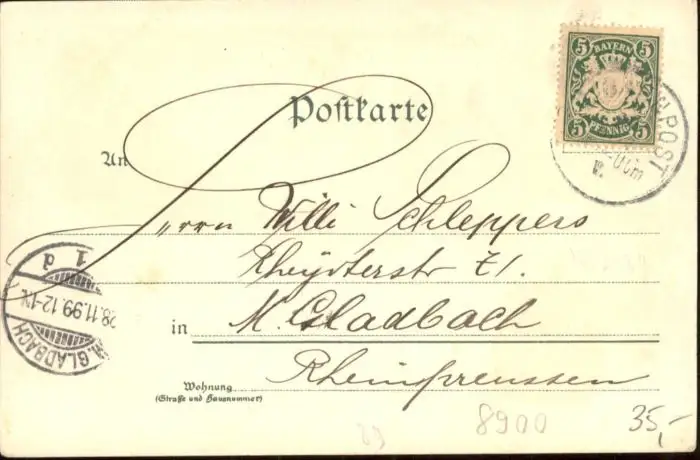 5 BAYERN 5
5 PFENNIG 5
POST
Postkarte
An
Herrn Willi Schleppers
Rheydterstr 71.
in M. Gladbach
Rheinpreussen
Wohnung
(Straße und Hausnummer)
M. GLADBACH
28.11.99.12-1N.
1 d
8900
35,-